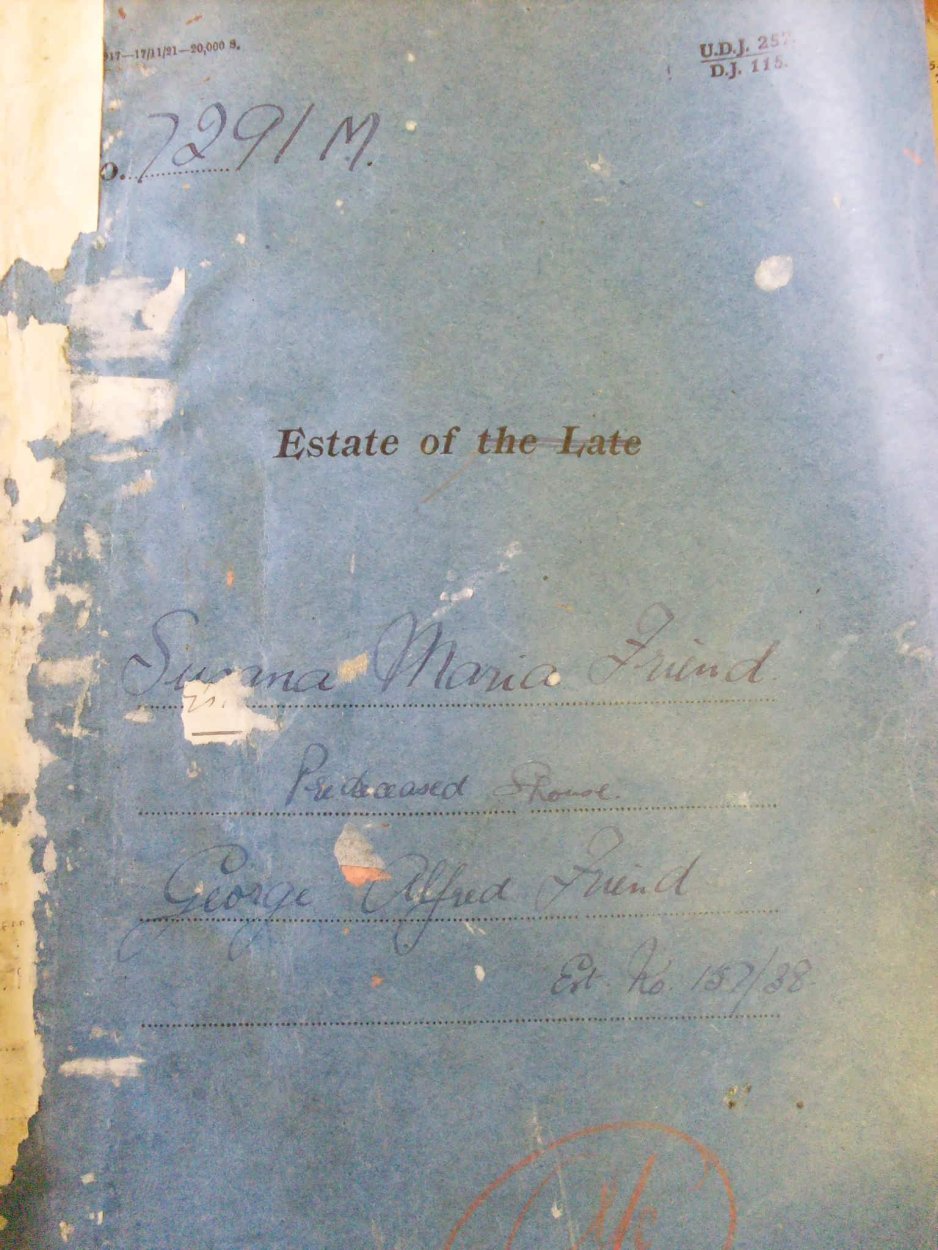 17—17/11/21—20,000 S.
U.D.J. 257.
D.J. 115.
o. 7291 M.
Estate of the Late
Susana Maria Friend.
Predeceased Spouse.
George Alfred Friend
Est. No. 157/38